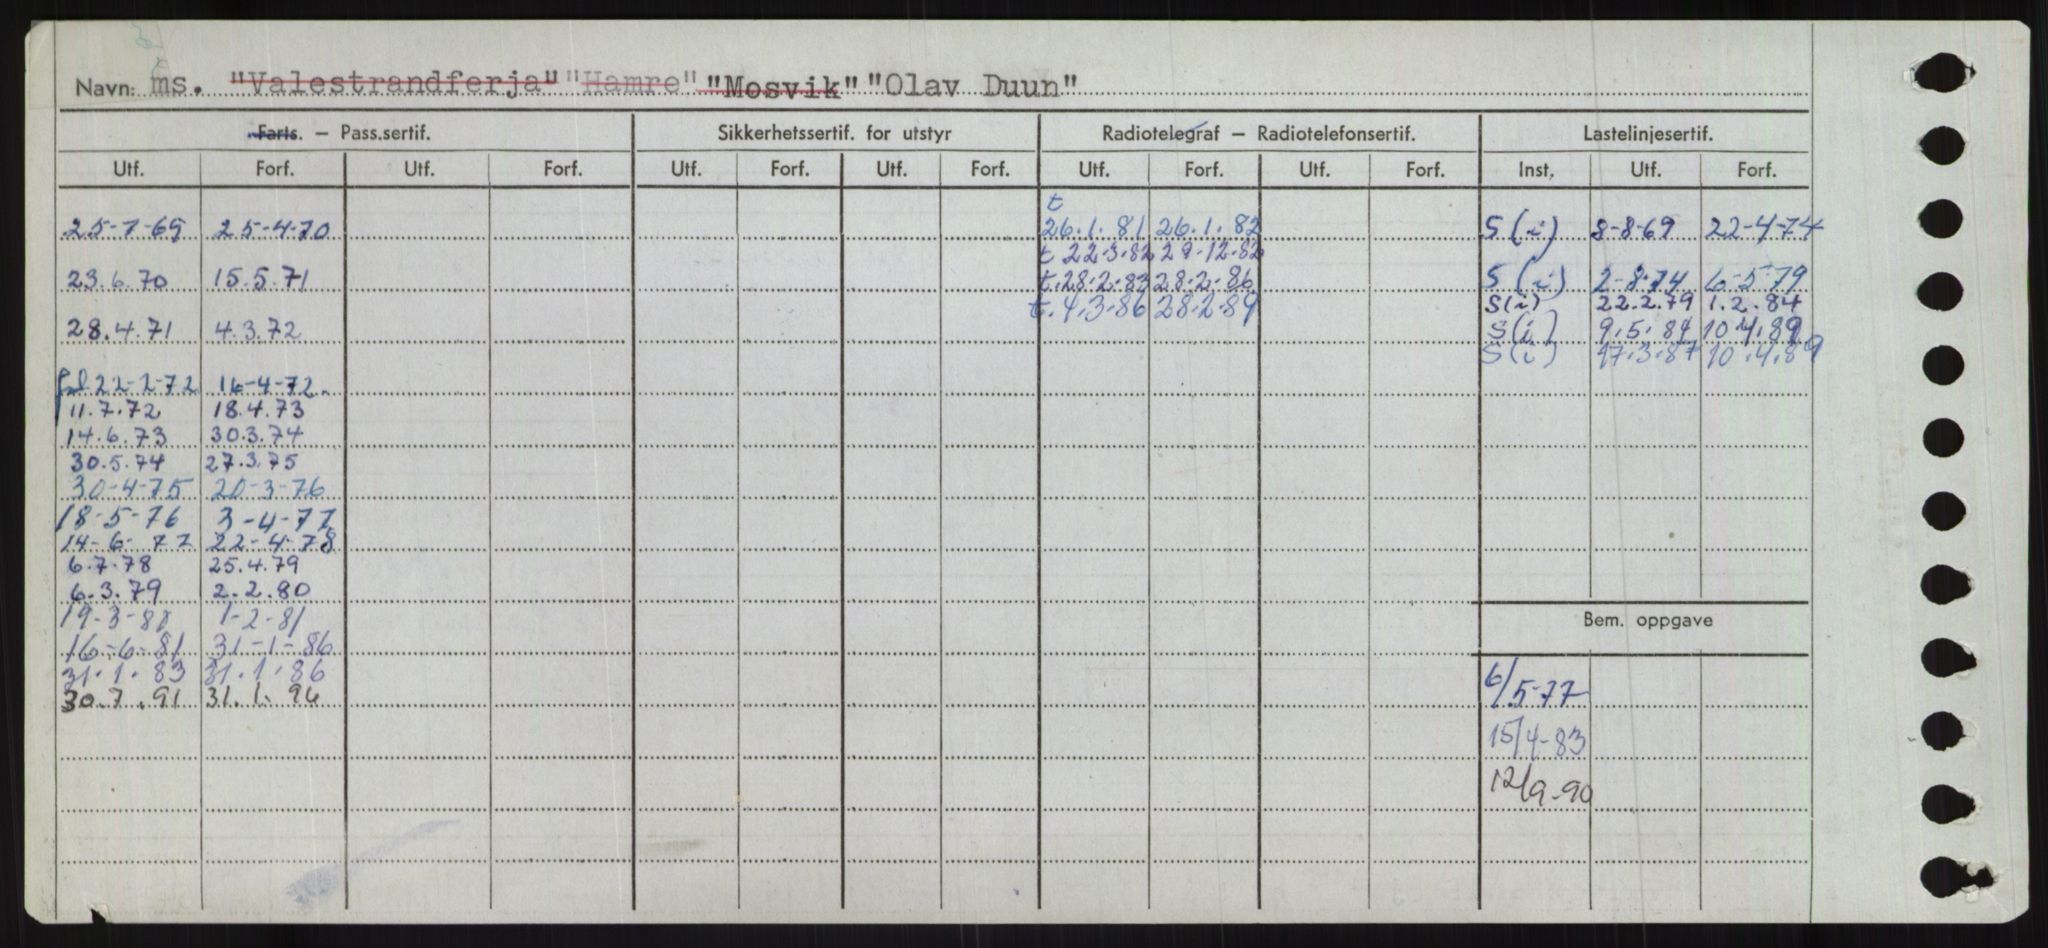 Navn: ms. "Valestrandferja" "Hamre" "Mosvik" "Olav Duun"
Farts. – Pass.sertif. Sikkerhetssertif. for utstyr Radiotelegraf – Radiotelefonsertif. Lastelinjesertif.
Utf. Forf. Utf. Forf. Utf. Forf. Utf. Forf. Utf. Forf. Utf. Forf. Inst. Utf. Forf.
t
25-7-69 25-4-70 26.1.81 26.1.82 S(i) 8-8-69 22-4-74
t 22.3.82 29.12.82
23.6.70 15.5.71 t.28.2.83 28.2.86 S(i) 2-8-74 6-5-79
t.4.3.86 28.2.89 S(i) 22.2.79 1.2.84
28.4.71 4.3.72 S(i) 9.5.84 10.4.89
S(i) 17.3.87 10.4.89
22-2-72 16-4-72.
11.7.72 18.4.73
14.6.73 30.3.74
30.5.74 27.3.75
30-4-75 20-3-76
18-5-76 3-4-77
14-6-77 22-4-78
6.7.78 25.4.79
6.3.79 2.2.80
19-3-80 1-2-81
Bem. oppgave
16-6-81 31-1-86
31.1.83 31.1.86
30.7.91 31.1.96
6/5-77
15/4-83
12/9-90